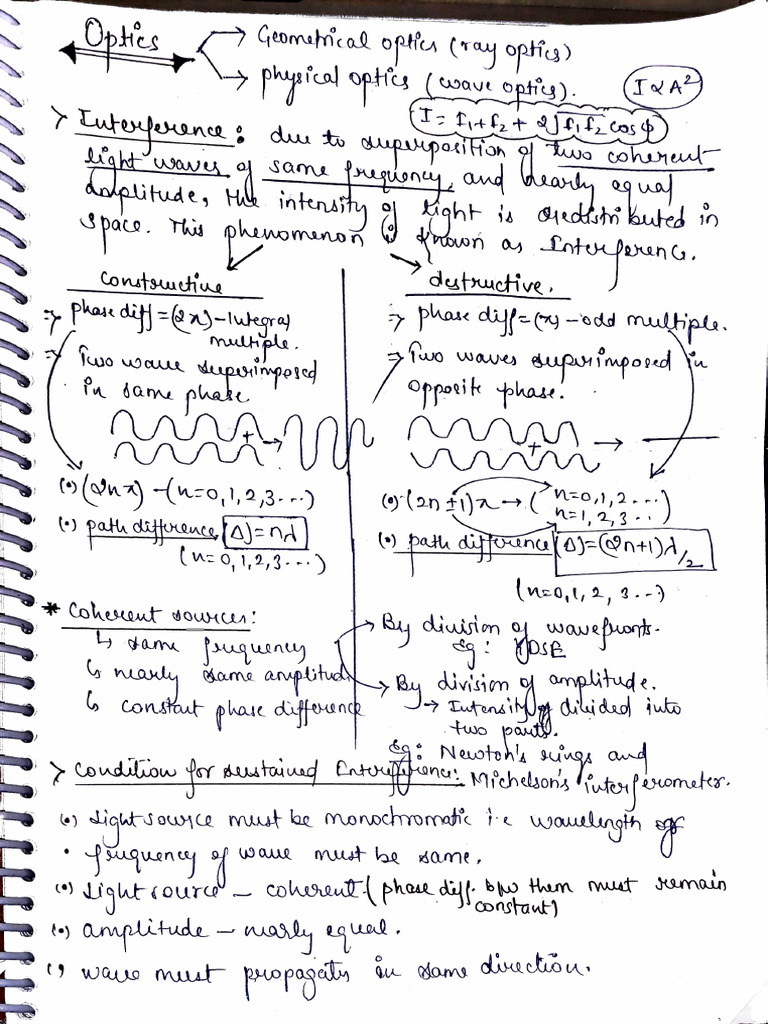 Optics → Geometrical optics (ray optics)
→ physical optics (wave optics).
I ∝ A²
I = I₁+I₂ + 2√I₁I₂ cosφ
> Interference: due to superposition of two coherent
light waves of same frequency, and nearly equal
amplitude, the intensity of light is redistributed in
space. This phenomenon is known as Interference.
constructive
⇒ phase diff = (2π) – Integral
multiple.
⇒ Two wave superimposed
in same phase
+ →
(•) (2nπ) – (n=0,1,2,3...)
(•) path difference (Δ) = nλ
(n=0,1,2,3...)
destructive.
⇒ phase diff = (π) – odd multiple.
⇒ Two waves superimposed in
opposite phase.
+ →
(•) (2n±1)π → (n=0,1,2...
n=1,2,3..)
(•) path difference (Δ) = (2n+1)λ/2
(n=0,1,2,3...)
* Coherent sources:
↳ same frequency
↳ nearly same amplitude
↳ constant phase difference
→ By division of wavefronts.
Eg: YDSE
→ By division of amplitude.
→ Intensity divided into
two parts.
Eg: Newton's rings and
Michelson's interferometer.
> Condition for sustained Interference:
(•) Light source must be monochromatic i.e wavelength or
• frequency of wave must be same.
(•) Light source – coherent (phase diff. b/w them must remain
constant)
(•) amplitude – nearly equal.
(•) wave must propagates in same direction.